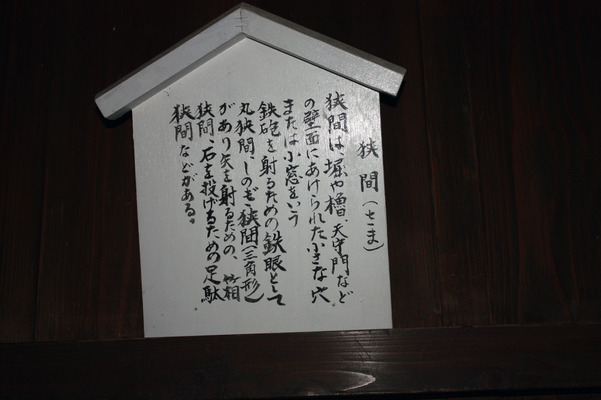 狭間（さま）
狭間は、堀や櫓、天守門など
の壁面にあけられた小さな穴
または小窓をいう
鉄砲を射るための鉄眼として
丸狭間、しのぎ狭間（三角形）
があり矢を射るための、箱
狭間、石を投げるための足駄
狭間などがある。